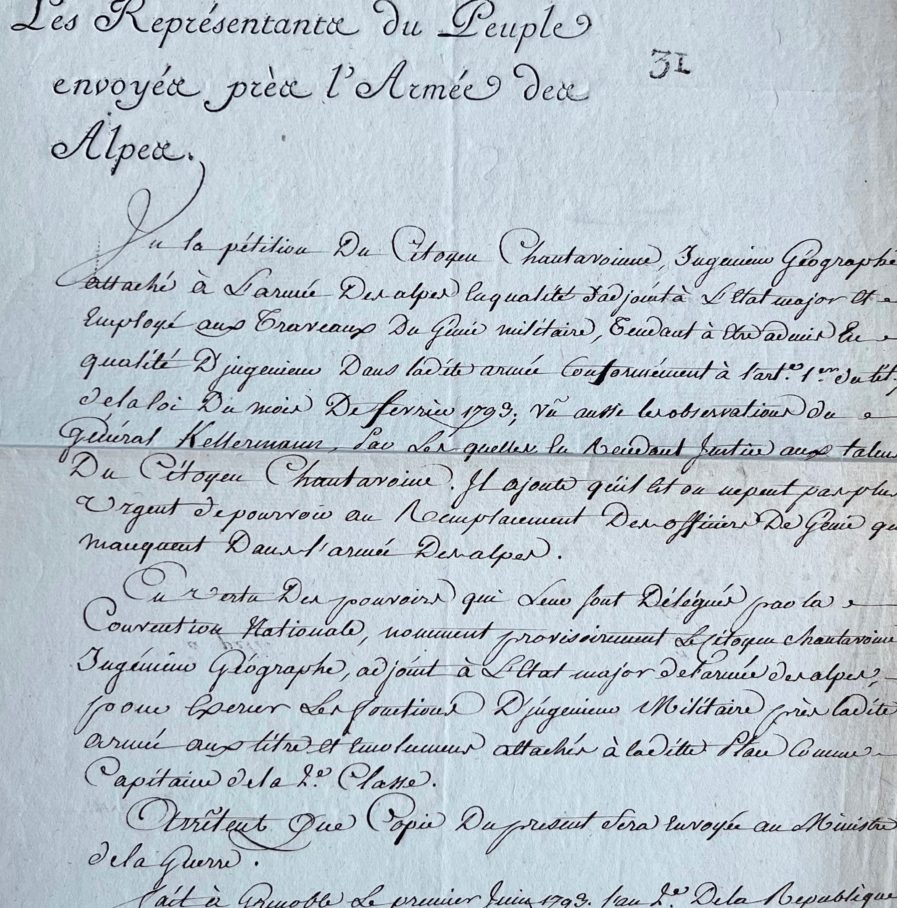 Les Représentants du Peuple
31
envoyés près l'Armée des
Alpes.
Vu la pétition Du Citoyen Chantavoinne, Ingenieur Géographe
attaché à L'armée Des alpes En qualité d'adjoint à L'Etat major Et
Employé aux Traveaux Du Genie militaire, Tendant à Etre admis En
qualité D'jngenieur Dans ladite armée Conformément à l'arte. 1er. du tit.
de la loi Du mois De fevrier 1793; vû aussi les observations du
général Kellermann, Par Les quelles En Rendant Justice aux talens
Du Citoyen Chantavoine. Il ajoute qu'il Est on ne peut pas plus
Urgent de pourvoir au Remplacement Des officiers De Génie qu
manquent Dans l'armée Des alpes.
En vertu Des pouvoirs qui Leur sont Délégués par la
Convention Nationale, nomment provisoirement Le citoyen chantavoine
Ingénieur Géographe, adjoint à L'Etat major de l'armée des alpes,
pour Exercer Les fonctions D'jngenieur Militaire près ladite
armée aux titre et Emolumens attachés à ladite Place Comme
Capitaine de la 2e. Classe.
Arrêtent Que Copie Du present Sera Envoyée au Ministre
de la Guerre.
fait à Grenoble Le premier Juin 1793. l'an 2e. De la Republique